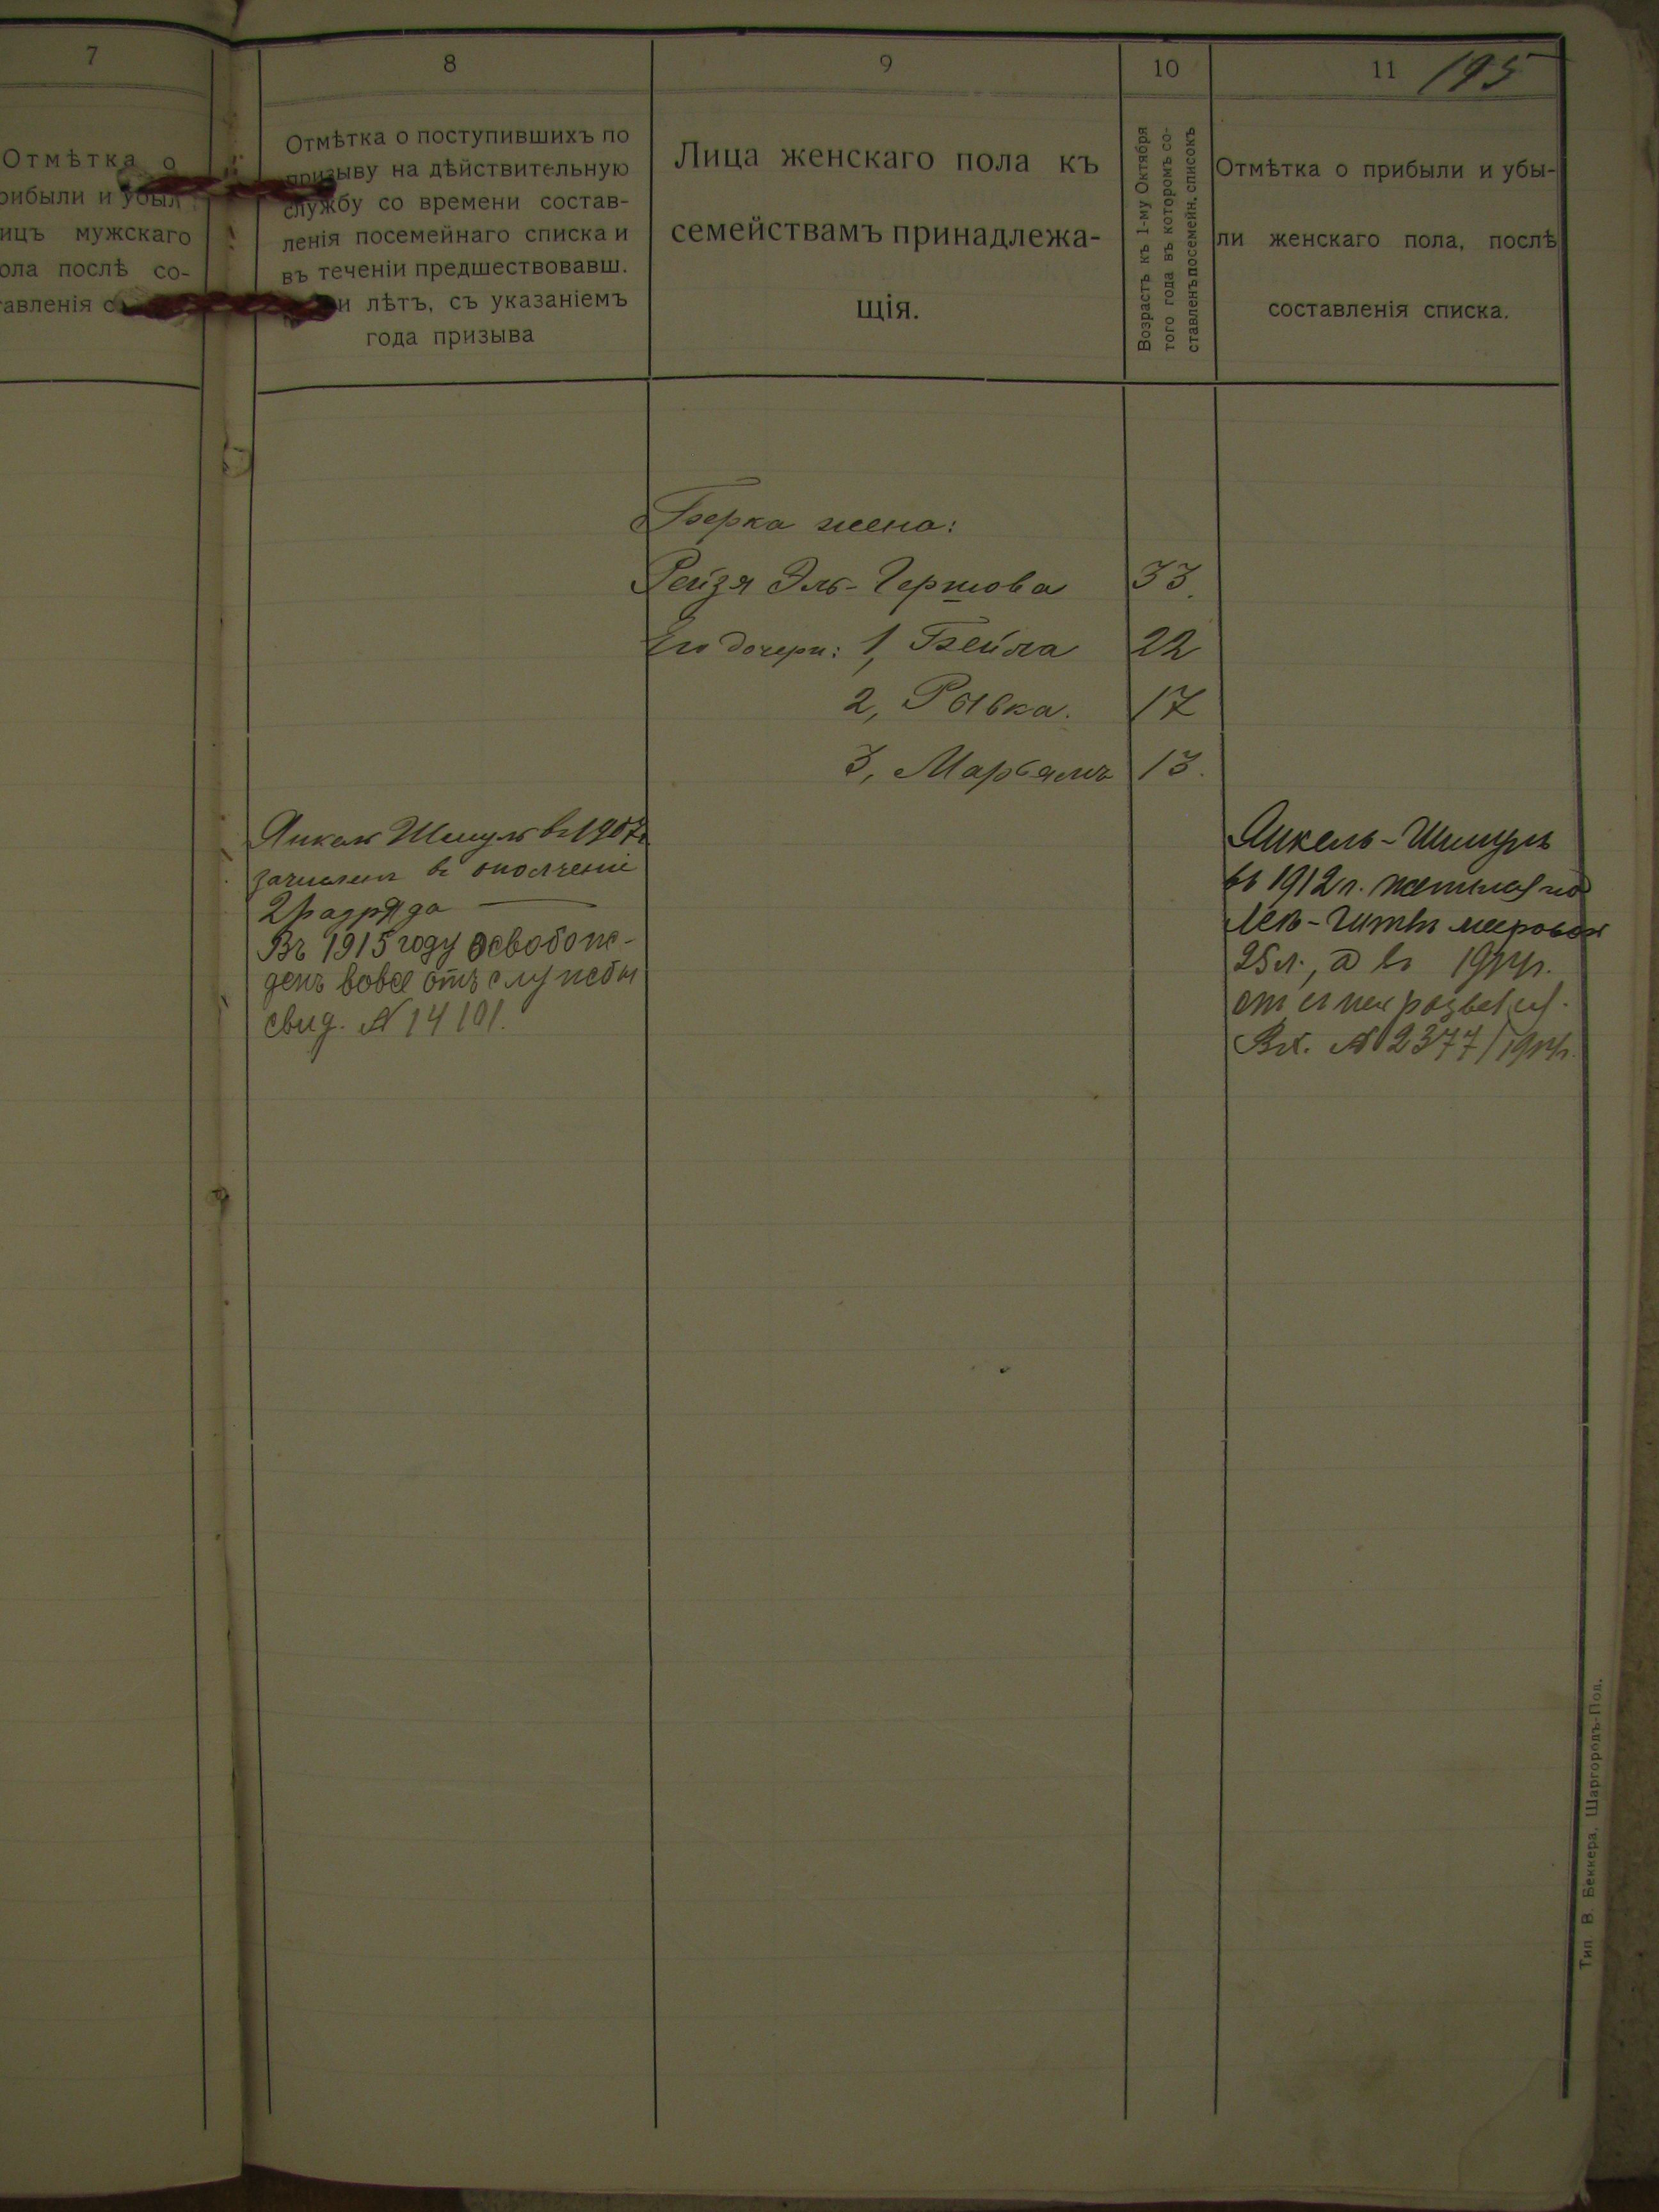 7
8
9
10
11
195
Отмѣтка о
рибыли и убыл
ицъ мужскаго
ола послѣ со-
тавленія с
Отмѣтка о поступившихъ по
призыву на дѣйствительную
службу со времени состав-
ленія посемейнаго списка и
въ теченіи предшествовавш.
и лѣтъ, съ указаніемъ
года призыва
Лица женскаго пола къ
семействамъ принадлежа-
щія.
Возрастъ къ 1-му Октября
того года въ которомъ со-
ставленъ посемейн. списокъ
Отмѣтка о прибыли и убы-
ли женскаго пола, послѣ
составленія списка.
Берка жена:
Рейзя Эль-Гершова 33.
Его дочери: 1, Бейла 22
2, Рывка. 17
3, Марьямъ 13.
Янкель Шмуль въ 1907г
зачисленъ въ ополченіе
2 разряда
Въ 1915 году освобож-
денъ вовсе отъ службы
свид. № 14101.
Янкель-Шмуль
въ 1912 г. женился на
Меровой
25 л., а въ
отъ нея развелся.
Вх. № 2377/
Тип. В. Беккера, Шаргородъ-Под.